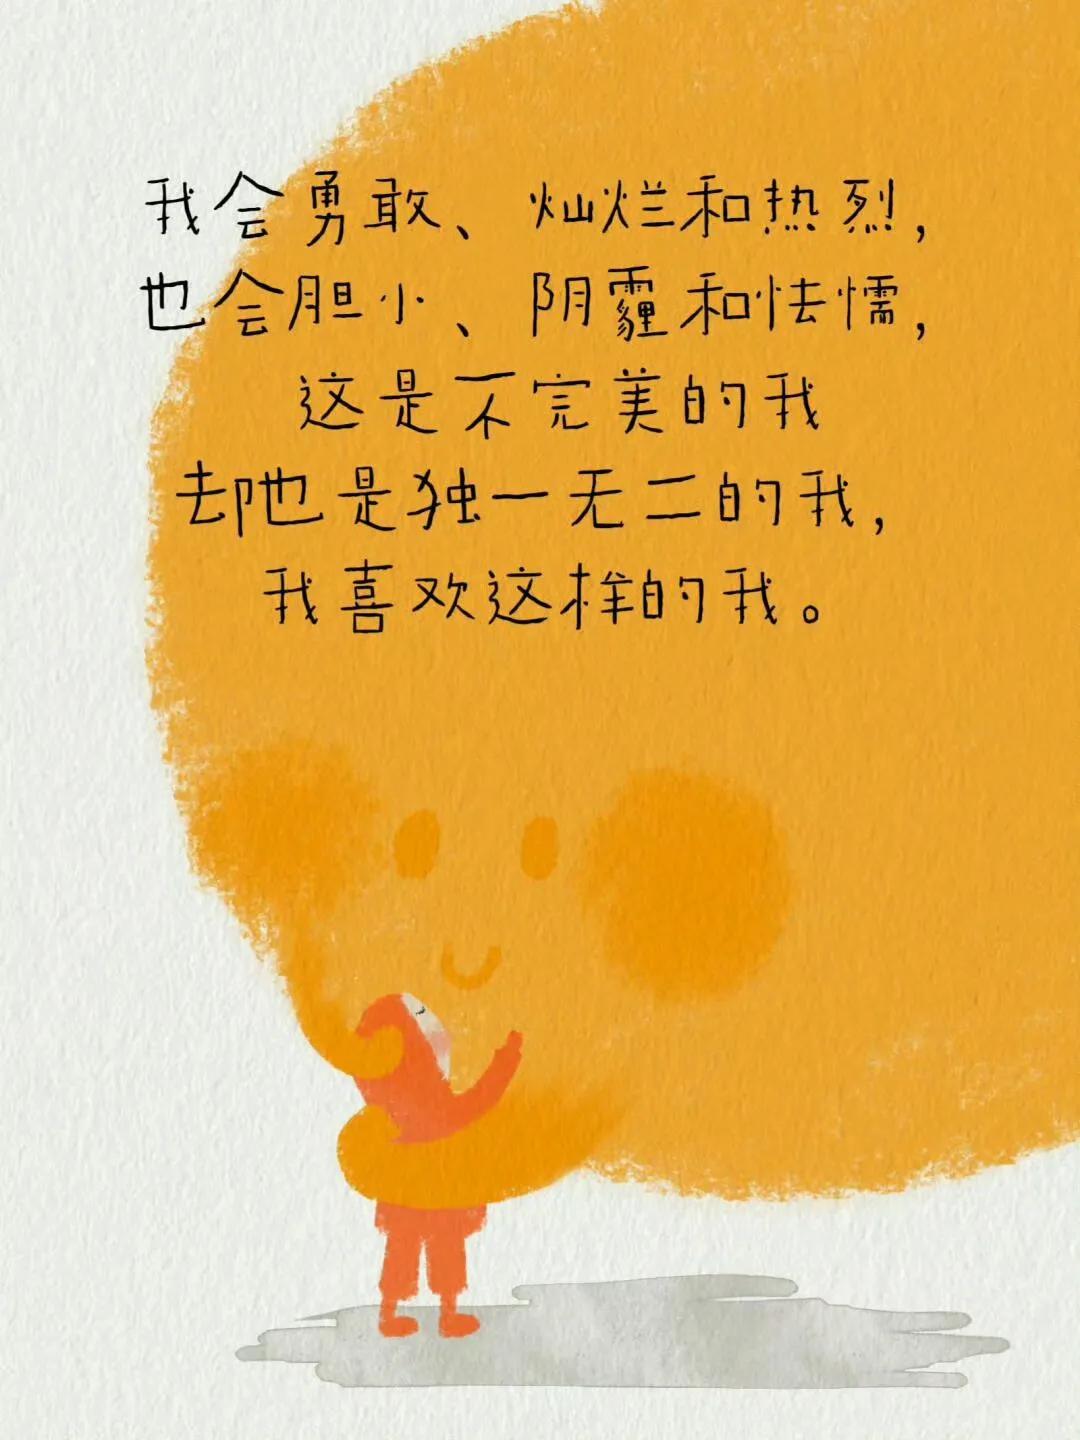 我会勇敢、灿烂和热烈，
也会胆小、阴霾和怯懦，
这是不完美的我
却也是独一无二的我，
我喜欢这样的我。